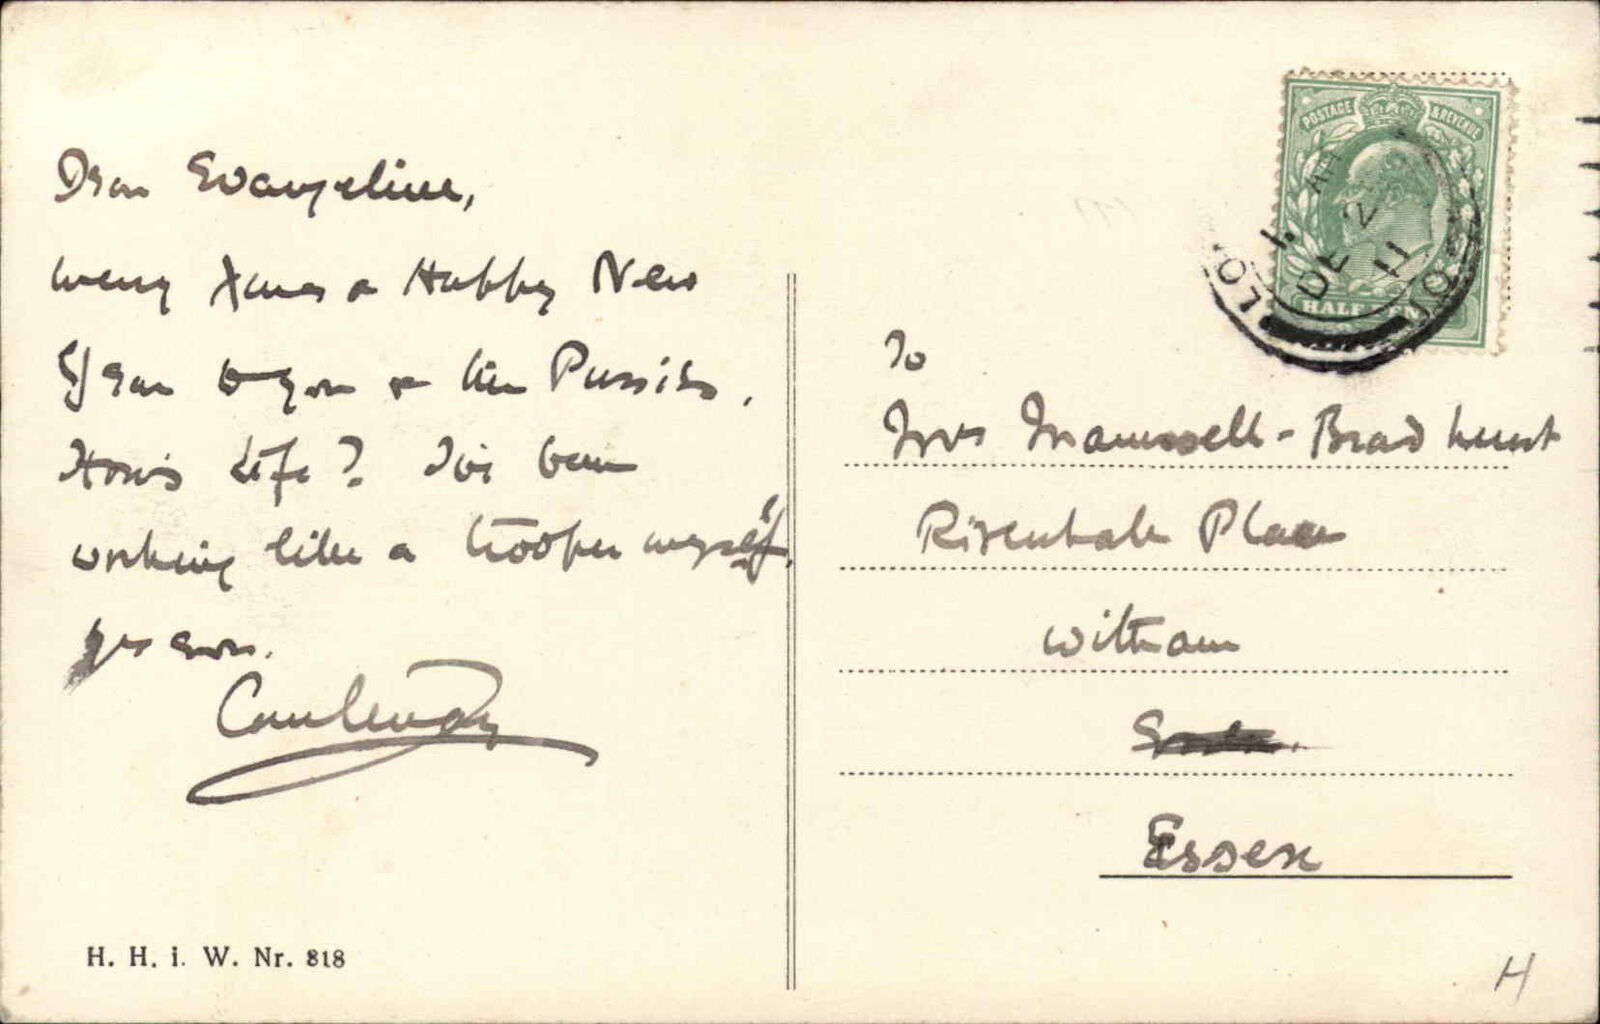 Dear Evangeline,
Merry Xmas & Happy New
Year to you & the Pussies.
How's Life? I've been
working like a trooper myself.
yrs ever.
To
Mrs Maunsell-Bradhurst
Rivenhale Place
Witham
Essex
POSTAGE & REVENUE
HALF
1 AM
DE 2
11
H. H. i. W. Nr. 818
H